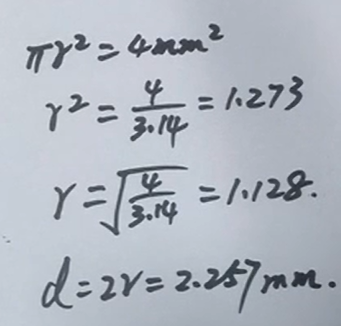 πr²=4mm²
r²=4/3.14=1.273
r=√(4/3.14)=1.128.
d=2r=2.257mm.